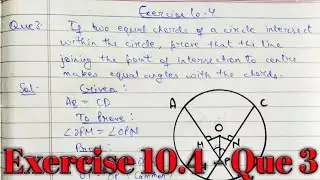 Exercise 10.4
Que 3 If two equal chords of a circle intersect
within the circle, prove that the line
joining the point of intersection to centre
makes equal angles with the chords.
Sol: Given :
AB = CD
To Prove :
∠OPM = ∠OPN
A C
O
Exercise 10.4 - Que 3
(Common)